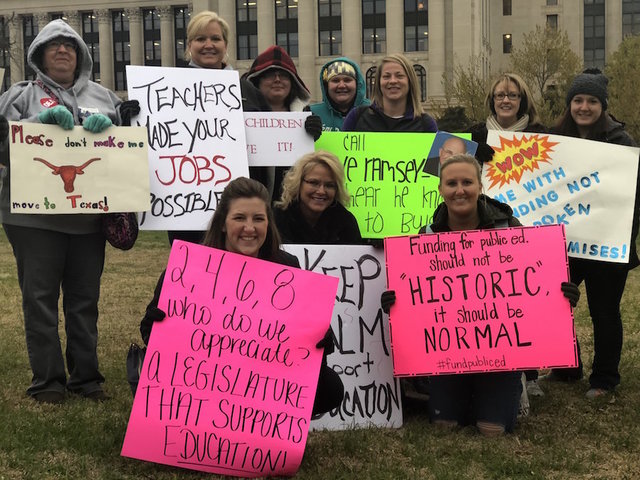 Please don't make me
move to Texas!
TEACHERS
MADE YOUR
JOBS
POSSIBLE
CHILDREN
IT!
CALL
RAMSEY
HEAR he
KNOWS
to
WOW
ME WITH
FUNDING NOT
BROKEN
PROMISES!
2, 4, 6, 8
who do we
appreciate?
A LEGISLATURE
THAT SUPPORTS
EDUCATION!
KEEP
CALM
EDUCATION
Funding for public ed.
should not be
"HISTORIC",
it should be
NORMAL
#fundpubliced